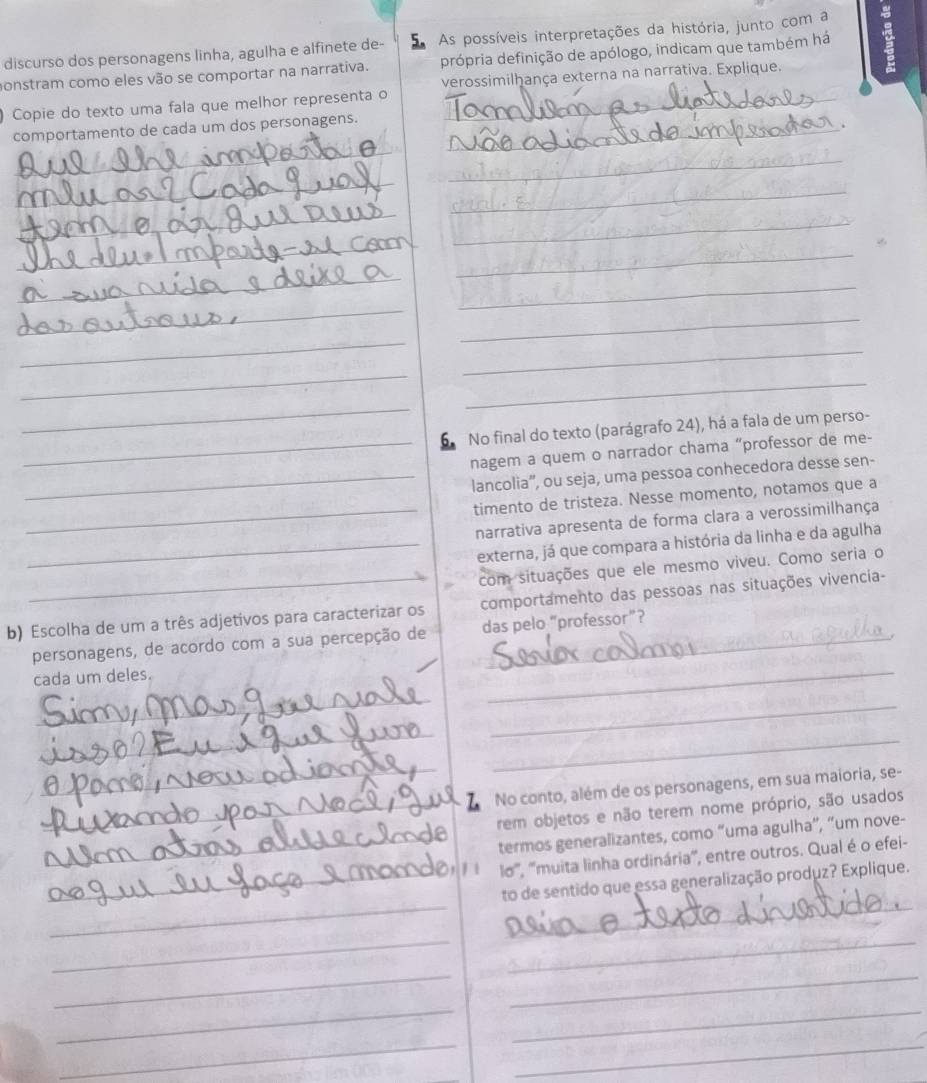 discurso dos personagens linha, agulha e alfinete de-
onstram como eles vão se comportar na narrativa.
Copie do texto uma fala que melhor representa o
comportamento de cada um dos personagens.
Que lhe importa o
meu ar? Cada qual
tem o ar que Deus
lhe deu. Importe-se com
a sua vida e deixe a
dos outros.
b) Escolha de um a três adjetivos para caracterizar os
personagens, de acordo com a sua percepção de
cada um deles.
Sim, mas, que vale
isso? Eu é que furo
o pano, vou adiante,
Puxando por você, que
vem atrás obedecendo
ao que eu faço e mando.
5. As possíveis interpretações da história, junto com a
própria definição de apólogo, indicam que também há
verossimilhança externa na narrativa. Explique.
Também os batedores
vão adiante do imperador.
6. No final do texto (parágrafo 24), há a fala de um perso-
nagem a quem o narrador chama "professor de me-
lancolia", ou seja, uma pessoa conhecedora desse sen-
timento de tristeza. Nesse momento, notamos que a
narrativa apresenta de forma clara a verossimilhança
externa, já que compara a história da linha e da agulha
com situações que ele mesmo viveu. Como seria o
comportamento das pessoas nas situações vivencia-
das pelo "professor"?
7. No conto, além de os personagens, em sua maioria, se-
rem objetos e não terem nome próprio, são usados
termos generalizantes, como "uma agulha", "um nove-
lo", "muita linha ordinária", entre outros. Qual é o efei-
to de sentido que essa generalização produz? Explique.
o texto
Produção de